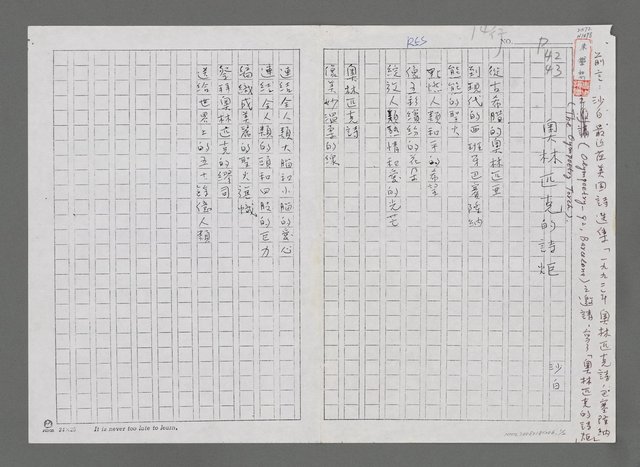 前言：沙白最近在美國詩選集「一九九二年奧林匹克詩，巴塞隆納
(Olympoetry-92, Barcelona)之邀請，寫了「奧林匹克的詩炬」
(The Olympoetry Torch).
P42
43
NO.
RES
奧林匹克的詩炬
沙白
從古希臘的奧林匹亞
到現代的西班牙巴塞隆納
熊熊的聖火
點燃人類和平的希望
像五彩繽紛的花朵
綻放人類熱情和愛的光芒
奧林匹克詩
像美妙溫柔的線
連結全人類大腦和小腦的愛心
連結全人類的頭和四肢的巨力
編織成美麗的聖火旗幟
祭拜奧林匹克的繆司
送給世界上的五十餘億人類
24×25
It is never too late to learn.